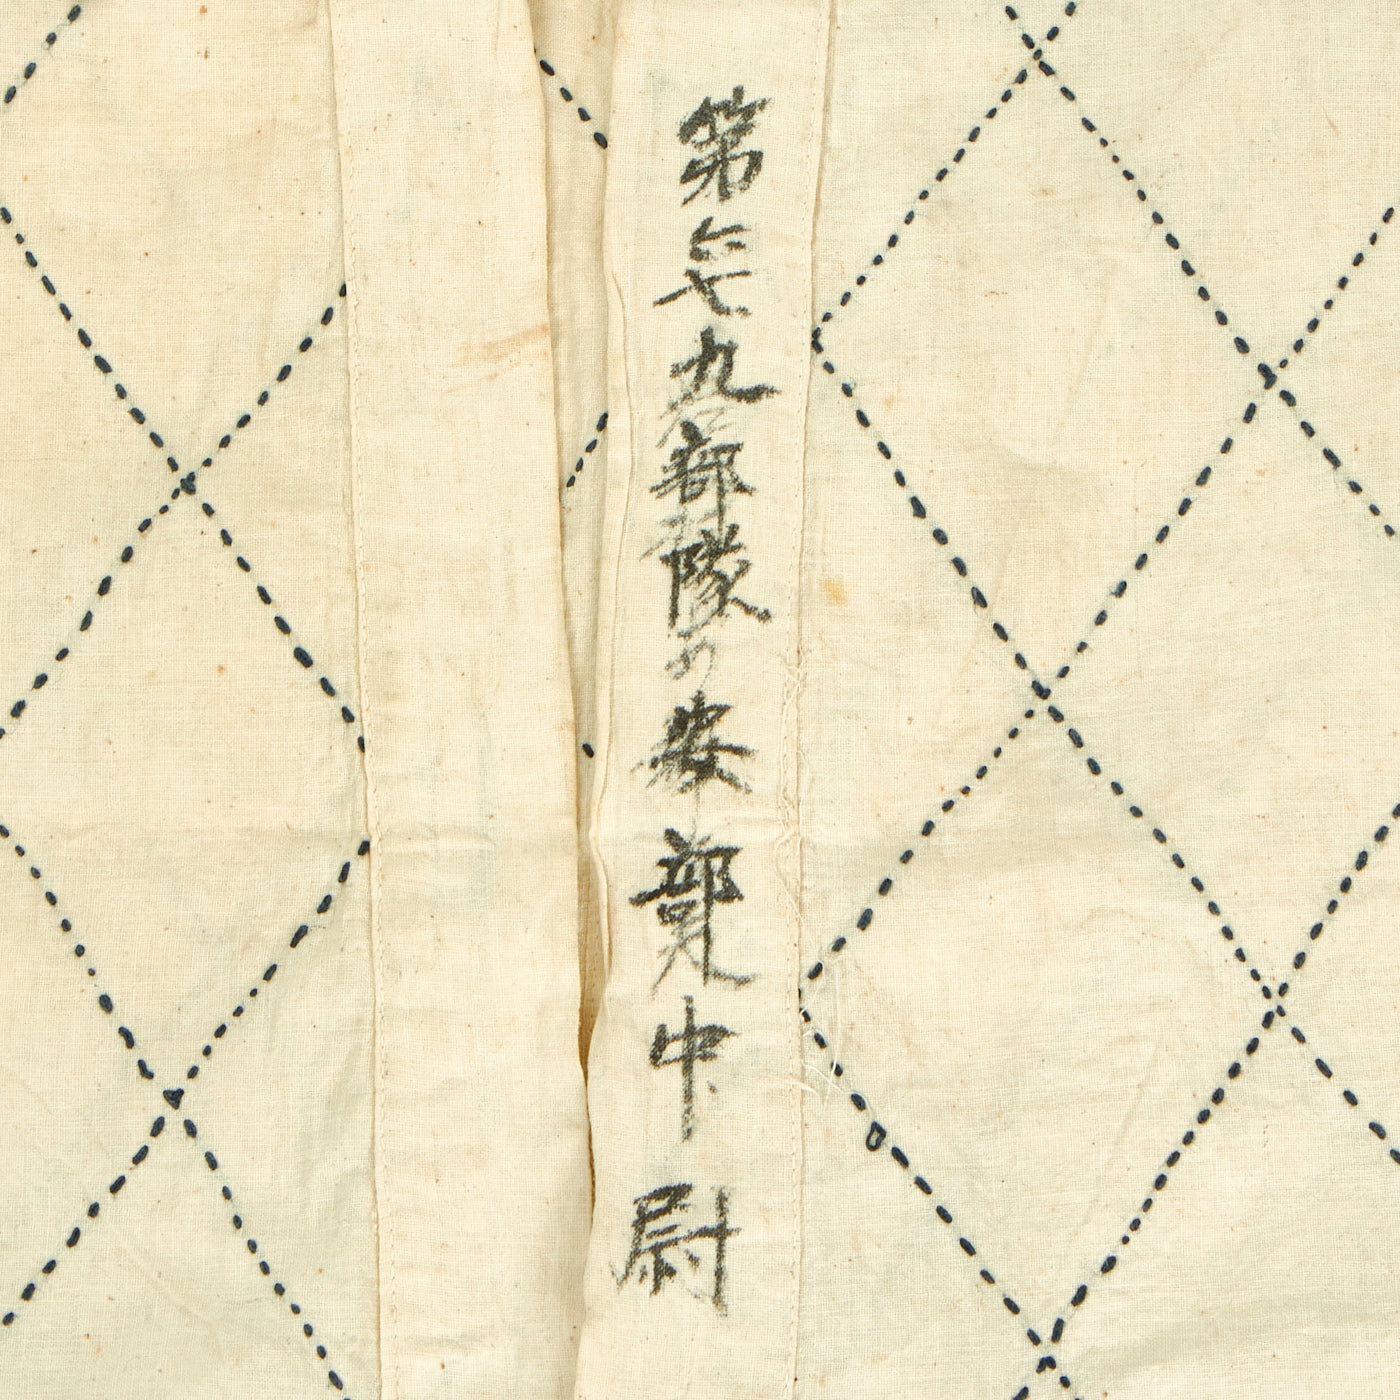 第六七九部隊安部中尉